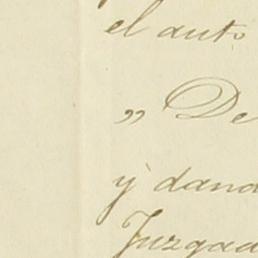 el auto
„ De
y dand
Juzgad